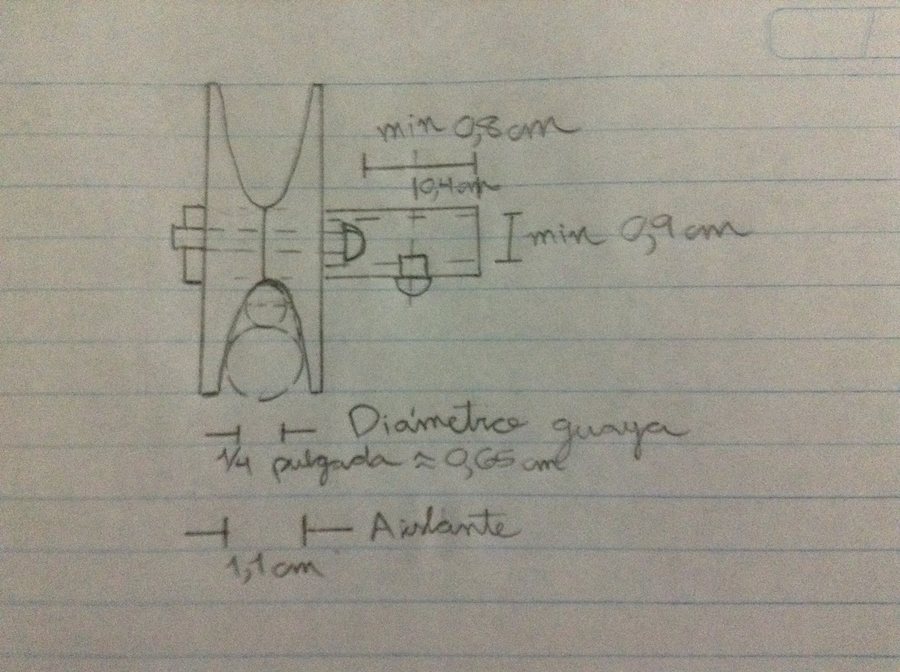 min 0,8 cm
0,4 cm
min 0,9 cm
Diámetro guaya
1/4 pulgada ≈ 0,65 cm
Aislante
1,1 cm